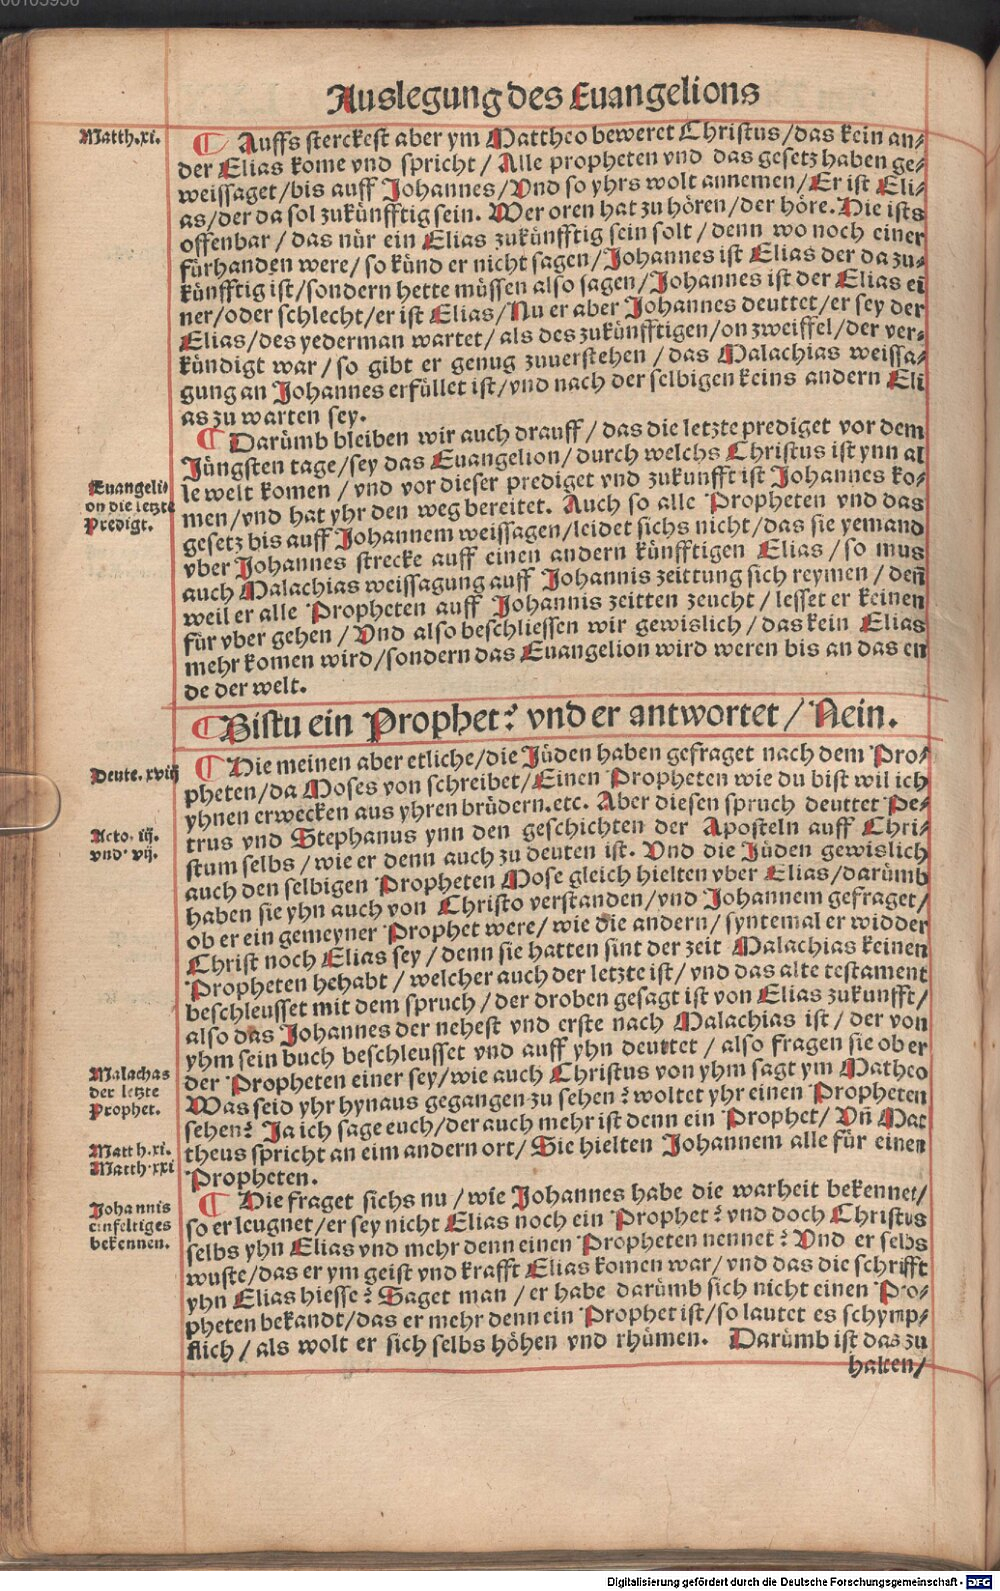 00105956
Auslegung des Euangelions
Matth.xi.
¶ Auffs sterckest aber ym Mattheo beweret Christus/das kein an-
der Elias kome vnd spricht/ Alle propheten vnd das gesetz haben ge-
weissaget/bis auff Johannes/Vnd so yhrs wolt annemen/Er ist Eli-
as/der da sol zukünfftig sein. Wer oren hat zu hören/der höre. Hie ists
offenbar/das nür ein Elias zukünfftig sein solt/denn wo noch einer
fürhanden were/so künd er nicht sagen/Johannes ist Elias der da zu-
künfftig ist/sondern hette müssen also sagen/Johannes ist der Elias ei
ner/oder schlecht/er ist Elias/Nu er aber Johannes deuttet/er sey der
Elias/des yederman wartet/als des zukünfftigen/on zweiffel/der ver-
kündigt war/so gibt er genug zuuerstehen/das Malachias weissa-
gung an Johannes erfüllet ist/vnd nach der selbigen keins andern Eli
as zu warten sey.
¶ Darümb bleiben wir auch drauff/das die letzte prediget vor dem
Jüngsten tage/sey das Euangelion/durch welchs Christus ist ynn al
Euangeli-
on die letzte
Predigt.
le welt komen/vnd vor dieser prediget vnd zukunfft ist Johannes ko-
men/vnd hat yhr den weg bereitet. Auch so alle Propheten vnd das
gesetz bis auff Johannem weissagen/leidet sichs nicht/das sie yemand
vber Johannes strecke auff einen andern künfftigen Elias/so mus
auch Malachias weissagung auff Johannis zeittung sich reymen/deñ
weil er alle Propheten auff Johannis zeitten zeucht/lesset er keinen
für vber gehen/Vnd also beschliessen wir gewislich/das kein Elias
mehr komen wird/sondern das Euangelion wird weren bis an das en
de der welt.
¶ Bistu ein Prophet? vnd er antwortet/Nein.
Deute. xviij
¶ Hie meinen aber etliche/die Jüden haben gefraget nach dem Pro-
pheten/da Moses von schreibet/Einen Propheten wie du bist wil ich
yhnen erwecken aus yhren brüdern.etc. Aber diesen spruch deuttet Pe-
Acto. iij.
vnd vij.
trus vnd Stephanus ynn den geschichten der Aposteln auff Chri-
stum selbs/wie er denn auch zu deuten ist. Vnd die Jüden gewislich
auch den selbigen Propheten Mose gleich hielten vber Elias/darümb
haben sie yhn auch von Christo verstanden/vnd Johannem gefraget/
ob er ein gemeyner Prophet were/wie die andern/syntemal er widder
Christ noch Elias sey/denn sie hatten sint der zeit Malachias keinen
Propheten hehabt/welcher auch der letzte ist/vnd das alte testament
beschleusset mit dem spruch/der droben gesagt ist von Elias zukunfft/
also das Johannes der nehest vnd erste nach Malachias ist/der von
yhm sein buch beschleusset vnd auff yhn deuttet/also fragen sie ob er
Malachas
der letzte
Prophet.
der Propheten einer sey/wie auch Christus von yhm sagt ym Matheo
Was seid yhr hynaus gegangen zu sehen? woltet yhr einen Propheten
sehen? Ja ich sage euch/der auch mehr ist denn ein Prophet/Vñ Mat
Matth.xi.
Matth.xxi
theus spricht an eim andern ort/Sie hielten Johannem alle für einen
Propheten.
Johannis
einfeltiges
bekennen.
¶ Hie fraget sichs nu/wie Johannes habe die warheit bekennet/
so er leugnet/er sey nicht Elias noch ein Prophet? vnd doch Christus
selbs yhn Elias vnd mehr denn einen Propheten nennet? Vnd er selbs
wuste/das er ym geist vnd krafft Elias komen war/vnd das die schrifft
yhn Elias hiesse? Saget man/er habe darümb sich nicht einen Pro-
pheten bekandt/das er mehr denn ein Prophet ist/so lautet es schymp-
flich/als wolt er sich selbs höhen vnd rhümen. Darümb ist das zu
halten/
Digitalisierung gefördert durch die Deutsche Forschungsgemeinschaft - DFG